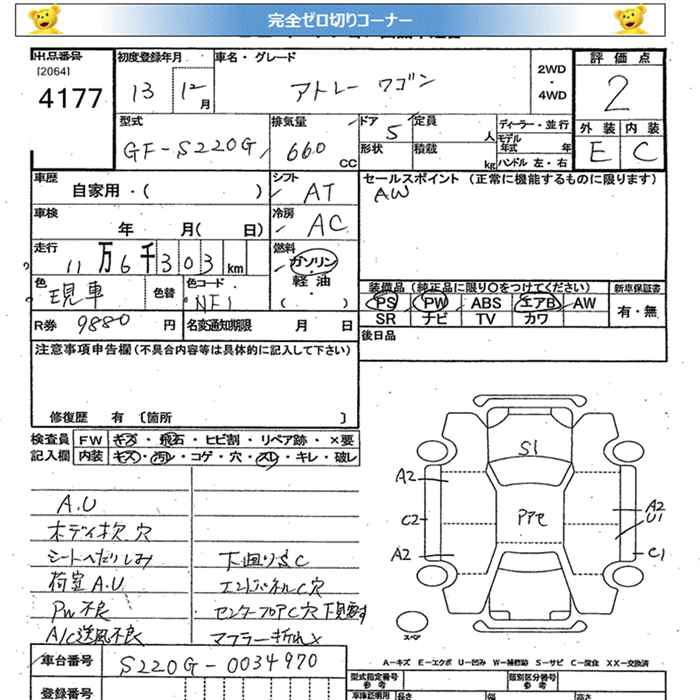 完全ゼロ切りコーナー
出品番号 初度登録年月 車名・グレード 評価点
[2064]
4177 13 12月 アトレー ワゴン 2WD・4WD 2
型式 排気量 ドア 定員 ディーラー・並行 外装 内装
GF-S220G 660CC 5 人 モデル年式 年 E C
形状 積載 kg ハンドル 左・右
車歴 シフト セールスポイント(正常に機能するものに限ります)
自家用・( ) AT AW
車検 冷房
年 月( 日) AC
走行 燃料
11万6千303km ガソリン・軽油・( )
色 色替 色コード 装備品(純正品に限り〇をつけてください) 新車保証書
現車 NF1 PS PW ABS エアB AW 有・無
R券 9880円 名変通知期限 月 日 SR ナビ TV カワ
後日品
注意事項申告欄(不具合内容等は具体的に記入して下さい)
修復歴 有 〔箇所 〕
検査員 FW キズ・飛石・ヒビ割・リペア跡・×要
記入欄 内装 キズ・汚レ・コゲ・穴・スレ・キレ・破レ
A.U
ボディ状 穴
シートヘたりしみ 下回りS.C
荷室A.U エンドパネルC穴
PW不良 センターフロアC穴
A/C送風不良 マフラー折れ×
S1
A2
A2
C2 U1
A2 C1
スペア
車台番号 S220G-0034970
A-キズ E-エクボ U-凹み W-補修跡 S-サビ C-腐食 XX-交換済
登録番号 型式指定番号 参考 類別区分番号 参考